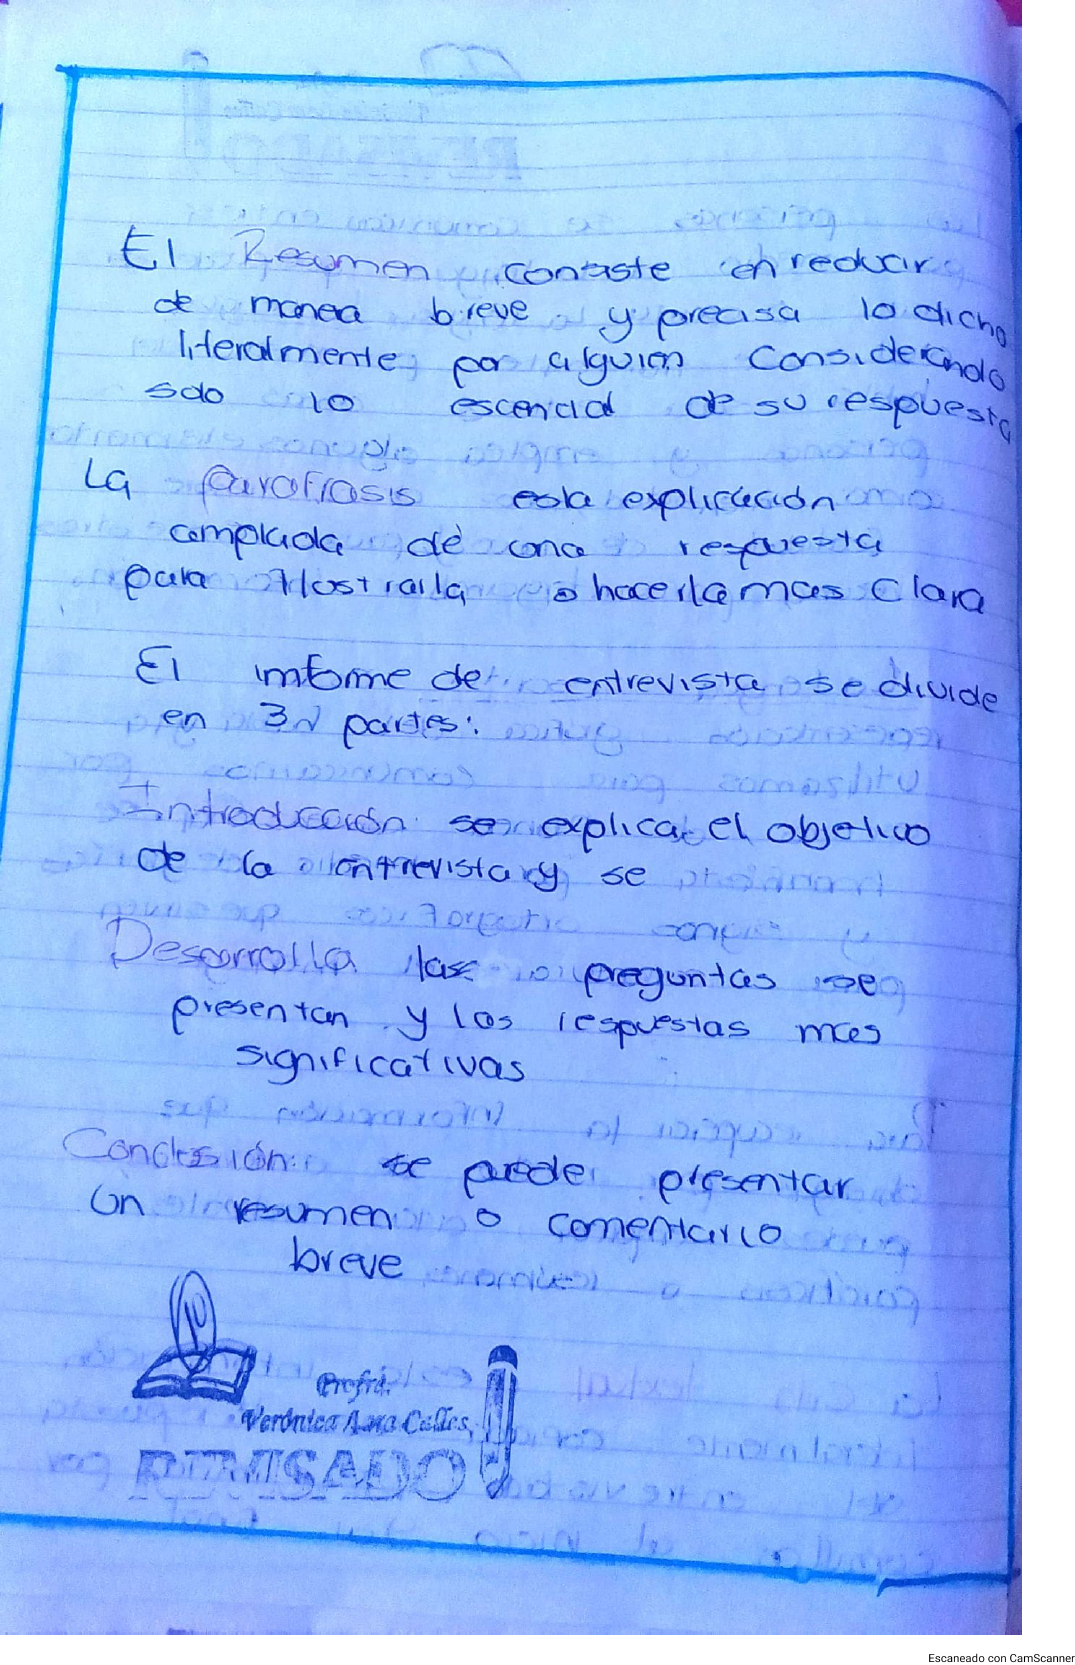 El Resumen consiste en reducir
de manea breve y precisa lo dicho
literalmente por alguien Considerando
solo lo escencial de su respuesta
La parafrasis es la explicación
ampliada de una respuesta
para Ilostrarla o hacerla mas Clara
El informe de entrevista se divide
en 3 partes:
Introducción se explica el objetivo
de la entrevista y se
Desarrolla las preguntas se
presentan y las respuestas mas
significativas
Conclusión: se puede presentar
Un resumen o comentario
breve
10
Profra.
Verónica Calles
REVISADO
Escaneado con CamScanner